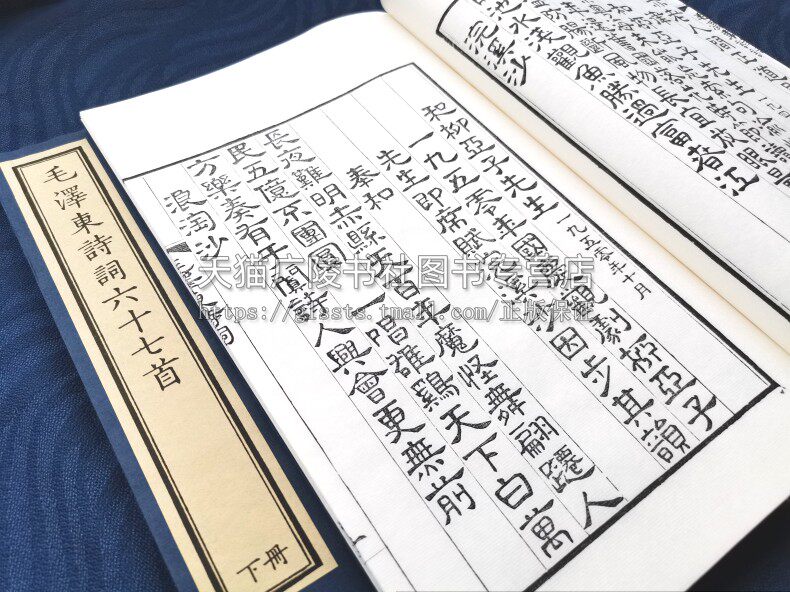 池水淺觀魚勝過富春江
浣溪沙
和柳亞子先生 一九五零年十月
一九五零年國慶觀劇柳亞子
先生即席賦浣溪沙因步其韻
奉和
長夜難明赤縣天百年魔怪舞翩躚人
民五億不團圓一唱雄鷄天下白萬
方樂奏有于闐詩人興會更無前
浪淘沙
毛澤東詩詞六十七首
下册
天猫广陵书社图书专营店
https://glssts.tmall.com/正版保证